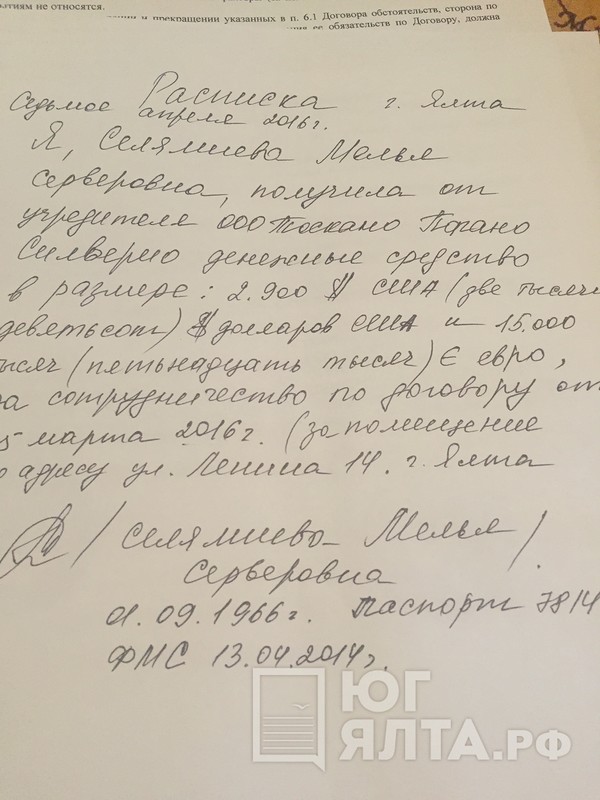 ытиям не относятся.
и прекращении указанных в п. 6.1 Договора обстоятельств, сторона по
обязательств по Договору, должна
Расписка г. Ялта
Седьмое апреля 2016г.
Я, Селямиева Мелья
Серверовна, получила от
учредителя ООО Тоскано
Силверио денежные средство
в размере: 2.900 $ США (две тысячи
девятьсот) $ долларов США и 15.000
тысяч (пятьнадцать тысяч) € евро,
за сотрудничество по договору от
5 марта 2016г. (за помещение
о адресу ул. Ленина 14. г. Ялта
/ Селямиева Мелья /
Серверовна
01.09.1966г. Паспорт 7814
ФМС 13.04.2014г.
ЮГ
ЯЛТА.РФ